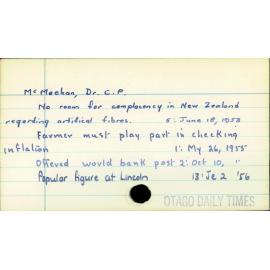 McMeekan, Dr. C.P.
No room for complacency in New Zealand
regarding artifical fibres. 5: June 18, 1953
Farmer must play part in checking
inflation 1: My 26, 1955
Offered world bank post 2: Oct 10, "
Popular figure at Lincoln 13: Je 2 '56
OTAGO DAILY TIMES